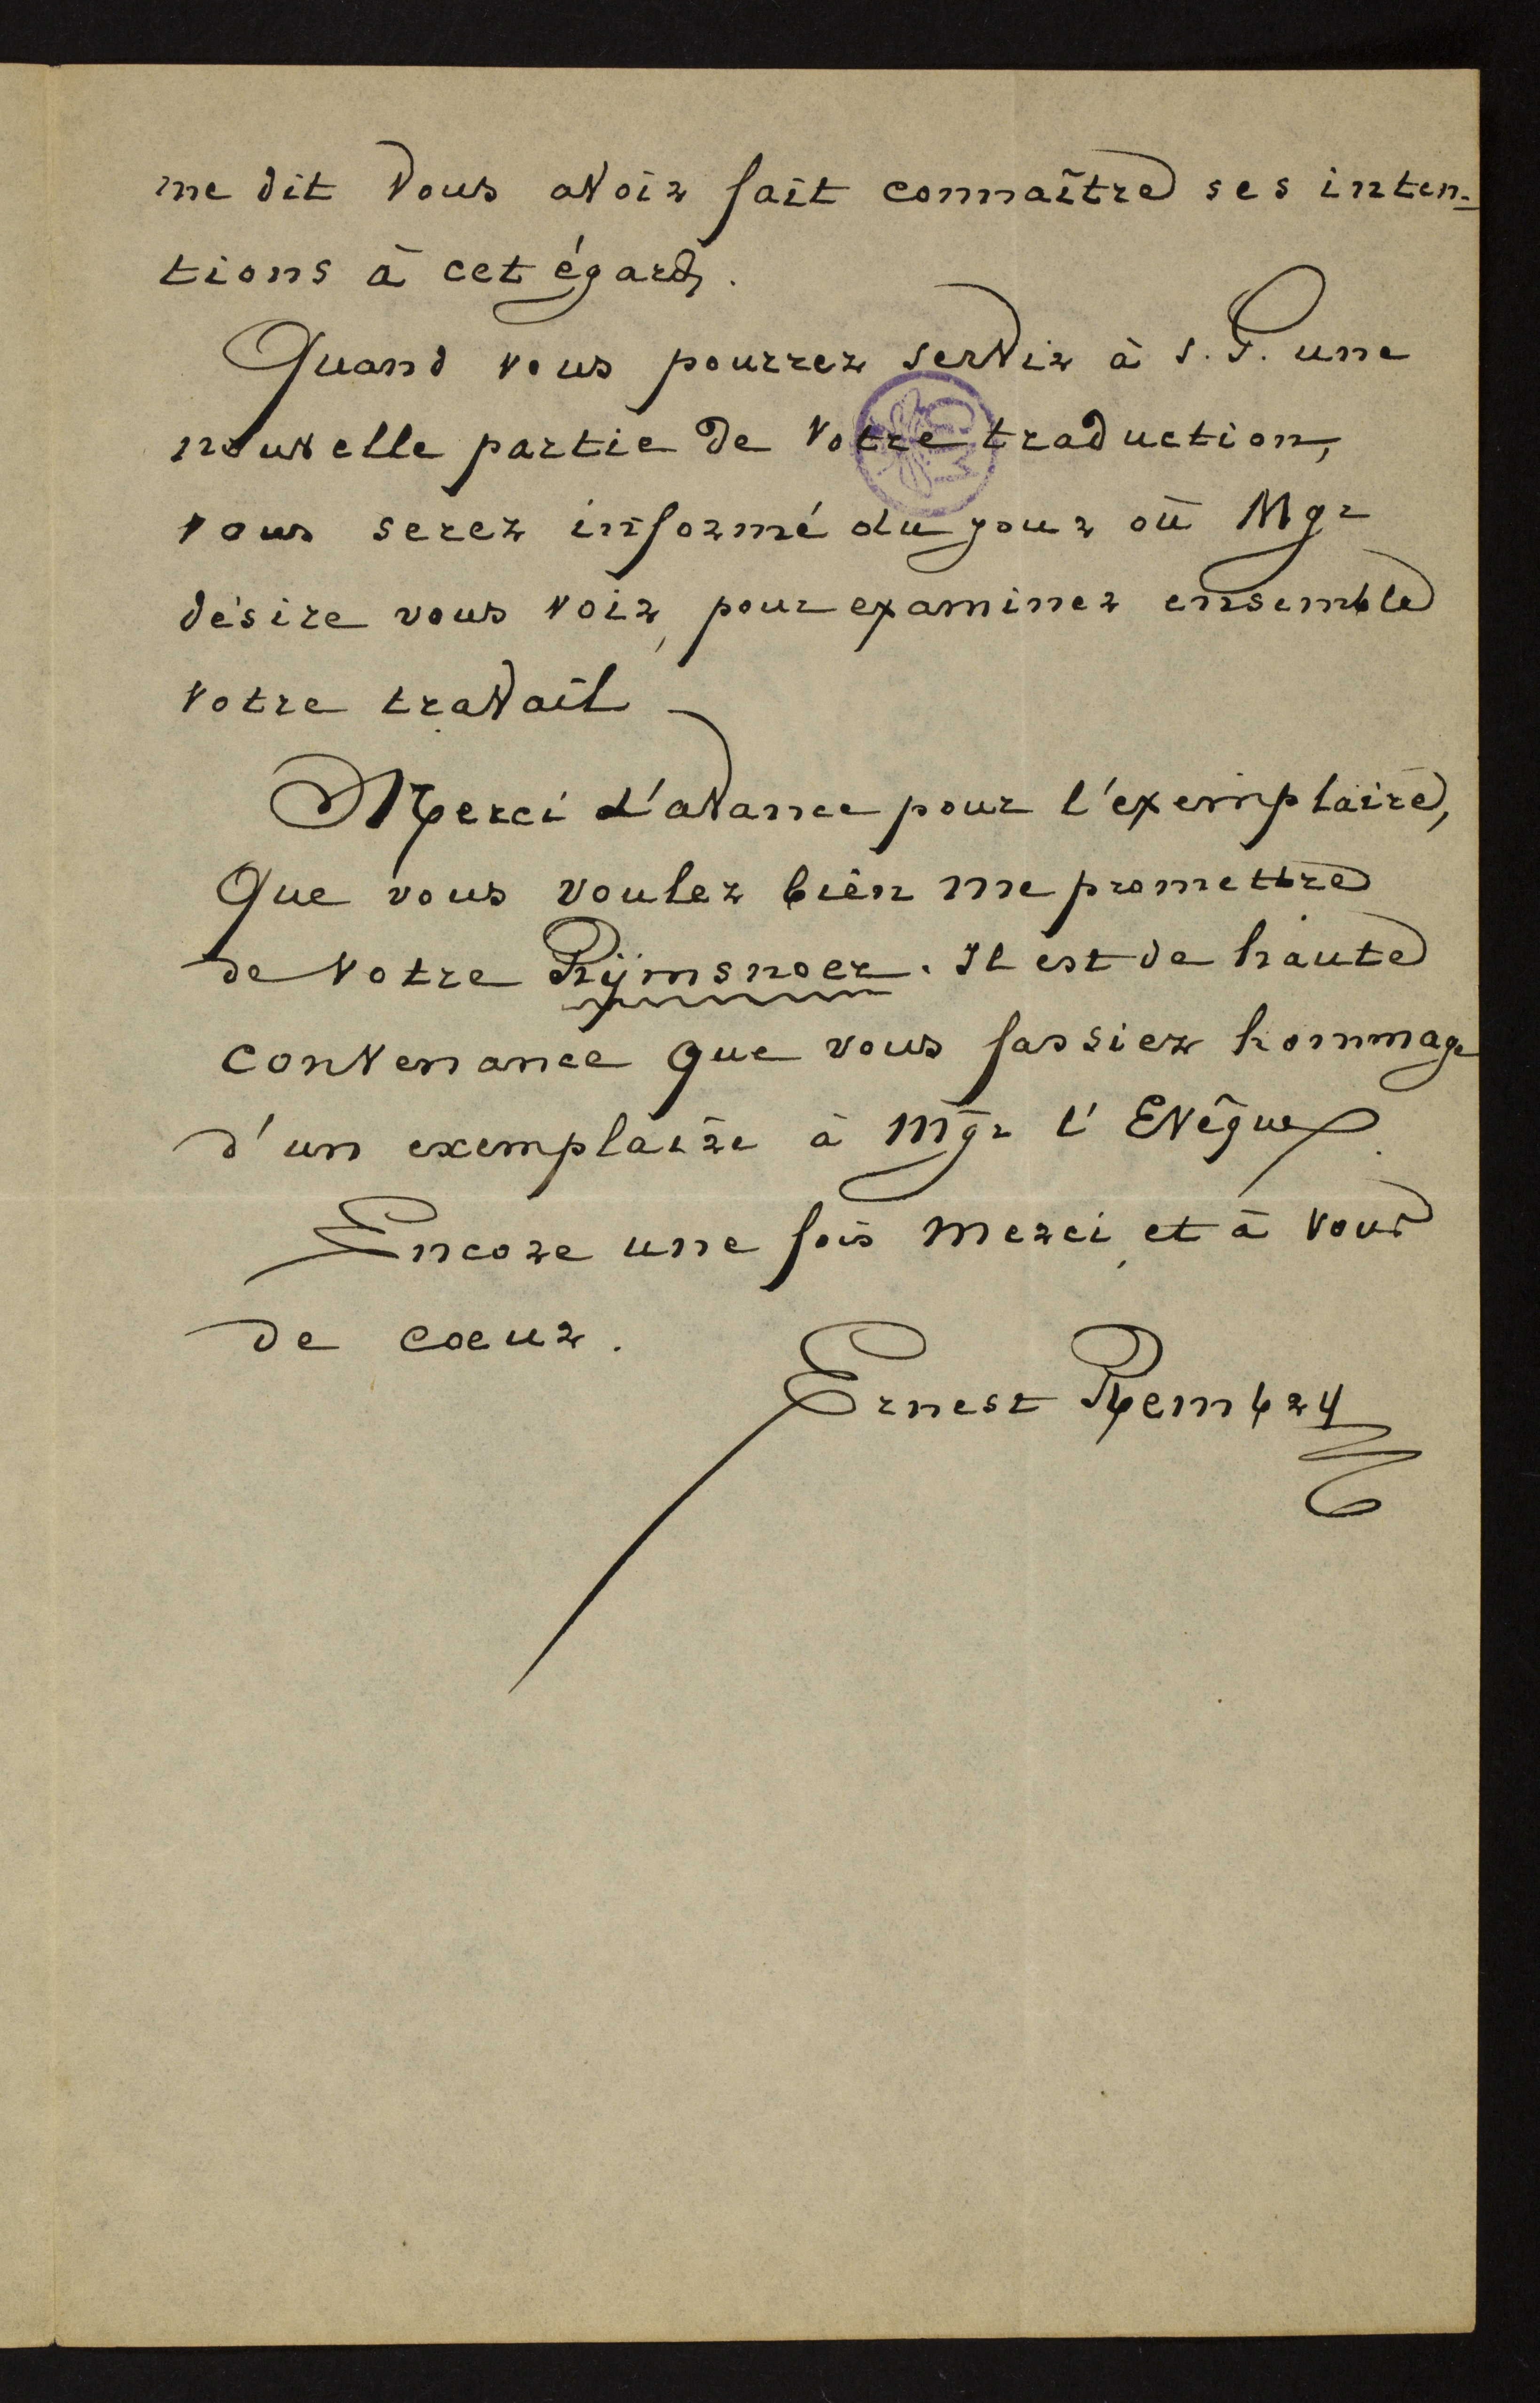 me dit vous avoir fait connaître ses inten-
tions à cet égard.
Quand vous pourrez servir à S. G. une
nouvelle partie de votre traduction,
vous serez informé du jour où Mgr
désire vous voir, pour examiner ensemble
votre travail –
Merci d'avance pour l'exemplaire,
que vous voulez bien me promettre
de votre Rijmsnoer. Il est de haute
convenance que vous fassiez hommage
d'un exemplaire à Mgr l'Evêque.
Encore une fois merci, et à vous
de coeur.
Ernest Rembry